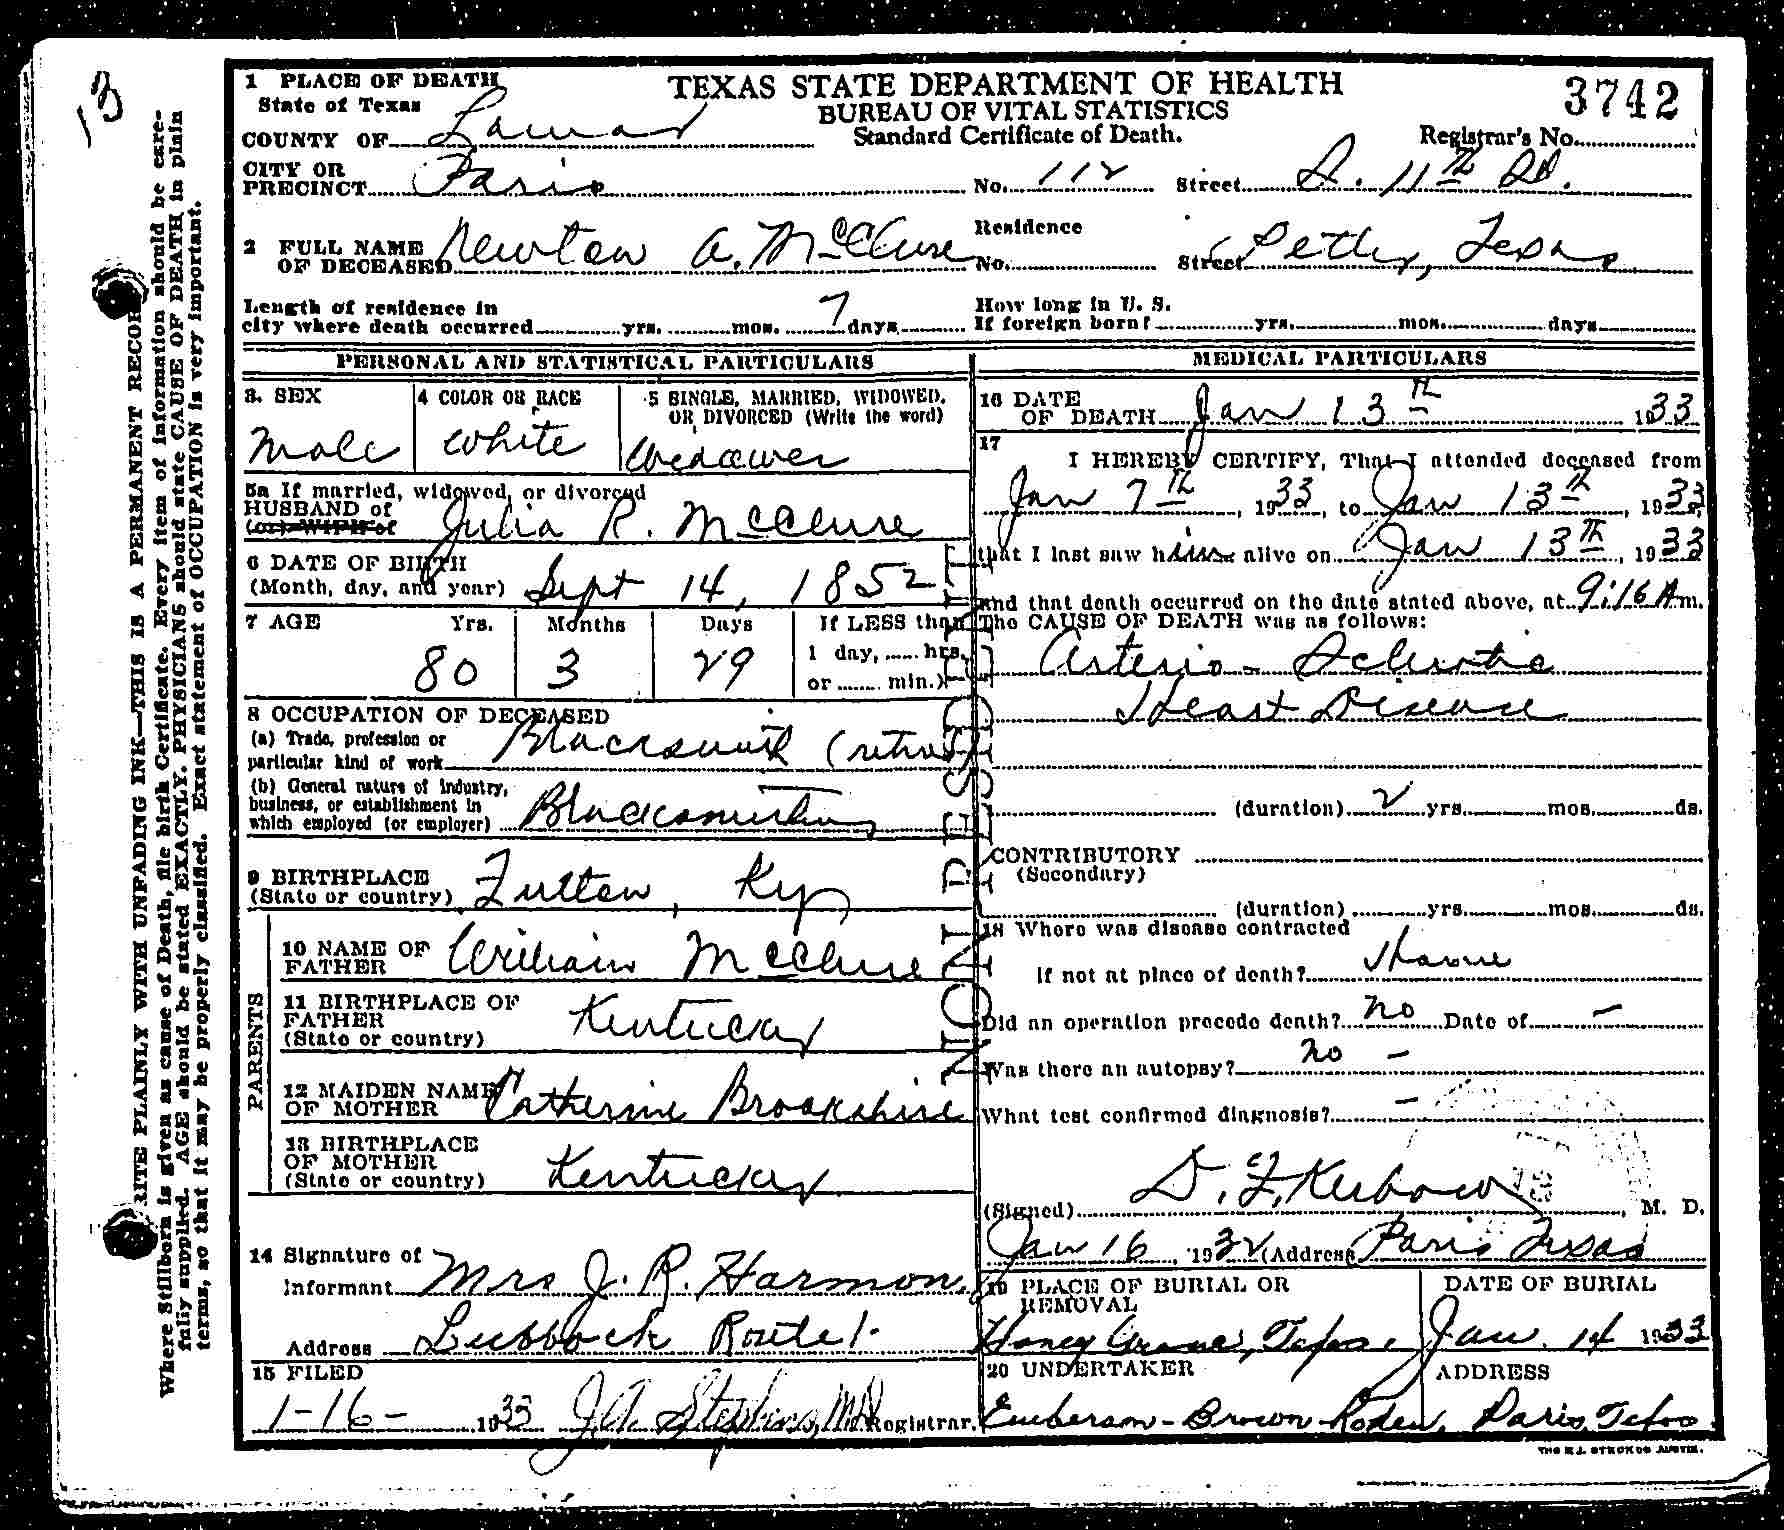 13
1 PLACE OF DEATH
State of Texas
COUNTY OF Lamar
CITY OR
PRECINCT Paris
TEXAS STATE DEPARTMENT OF HEALTH
BUREAU OF VITAL STATISTICS
Standard Certificate of Death.
3742
Registrar's No.
No. 112 Street S. 11th St.
2 FULL NAME
OF DECEASED Newton A. McClure
Residence
No. Street Petty, Texas
Length of residence in
city where death occurred yrs. mos. 7 days
How long in U. S.
If foreign born? yrs. mos. days
PERSONAL AND STATISTICAL PARTICULARS
3. SEX
Male
4 COLOR OR RACE
White
5 SINGLE, MARRIED, WIDOWED,
OR DIVORCED (Write the word)
Widower
5a If married, widowed, or divorced
HUSBAND of
(or) WIFE of Julia R. McClure
6 DATE OF BIRTH
(Month, day, and year) Sept 14, 1852
7 AGE Yrs. Months Days If LESS than
80 3 29 1 day, hrs.
or min.)
8 OCCUPATION OF DECEASED
(a) Trade, profession or
particular kind of work Blacksmith (retired)
(b) General nature of industry,
business, or establishment in
which employed (or employer) Blacksmithing
9 BIRTHPLACE
(State or country) Fulton, Ky
PARENTS
10 NAME OF
FATHER William McClure
11 BIRTHPLACE OF
FATHER
(State or country) Kentucky
12 MAIDEN NAME
OF MOTHER Catherine Brookshire
13 BIRTHPLACE
OF MOTHER
(State or country) Kentucky
14 Signature of
Informant Mrs J. R. Harmon,
Address Lubbock Route 1.
15 FILED
1-16- 1933 J.A. Stephens, MD Registrar.
MEDICAL PARTICULARS
16 DATE
OF DEATH Jan 13th 1933
17
I HEREBY CERTIFY, That I attended deceased from
Jan 7th, 1933, to Jan 13th, 1933,
that I last saw him alive on Jan 13th, 1933
and that death occurred on the date stated above, at 9:16 A m.
The CAUSE OF DEATH was as follows:
Arterio-Sclerotic
Heart Disease
(duration) 2 yrs. mos. ds.
CONTRIBUTORY
(Secondary)
(duration) yrs. mos. ds.
18 Where was disease contracted
If not at place of death? Home
Did an operation precede death? no Date of –
Was there an autopsy? no –
What test confirmed diagnosis? –
(Signed) D. F. Kerbow, M. D.
Jan 16, 1932 (Address Paris Texas
19 PLACE OF BURIAL OR
REMOVAL
Honey Grove, Texas.
DATE OF BURIAL
Jan. 14 1933
20 UNDERTAKER
Emberson-Brown-Roden,
ADDRESS
Paris, Texas.
WRITE PLAINLY WITH UNFADING INK—THIS IS A PERMANENT RECORD
Where Stillborn is given as cause of Death, file birth Certificate. Every item of information should be care-
fully supplied. AGE should be stated EXACTLY. PHYSICIANS should state CAUSE OF DEATH in plain
terms, so that it may be properly classified. Exact statement of OCCUPATION is very important.